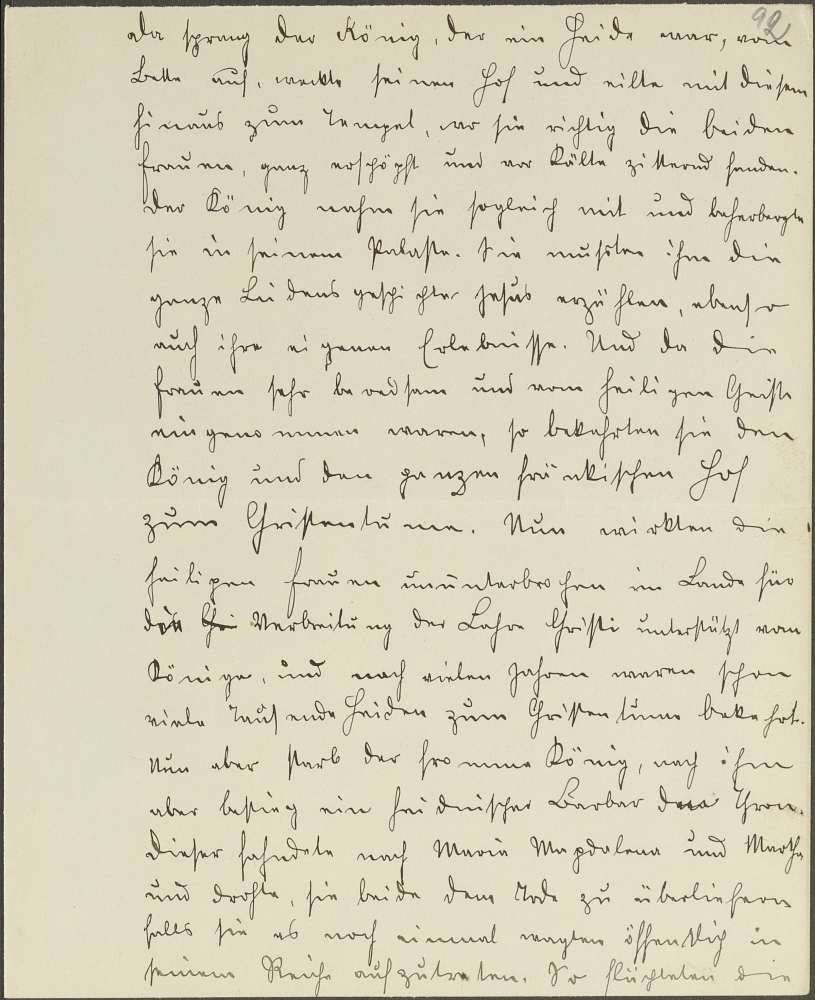 92
da sprang der König, der ein Heide war, vom
Bette auf, weckte seinen Hof und eilte mit diesem
hinaus zum Tempel, wo sie richtig die beiden
Frauen, ganz erschöpft und vor Kälte zitternd fanden.
Der König nahm sie sogleich mit und beherbergte
sie in seinem Palaste. Sie mußten ihm die
ganze Leidensgeschichte Jesus erzählen, ebenso
auch ihre eigenen Erlebnisse. Und da die
Frauen sehr beredsam und vom heiligen Geiste
eingenommen waren, so bekehrten sie den
König und den ganzen fränkischen Hof
zum Christentume. Nun wirkten die
heiligen Frauen ununterbrochen im Lande für
die Verbreitung der Lehre Christi unterstützt vom
Könige, und nach vielen Jahren waren schon
viele Tausende Heiden zum Christentume bekehrt.
Nun aber starb der fromme König, nach ihm
aber bestieg ein heidnischer Barbar den Thron.
Dieser fahndete nach Maria Magdalena und Martha
und drohte, sie beide dem Tode zu überliefern
falls sie es noch einmal wagten öffentlich in
seinem Reiche aufzutreten. So flüchteten die